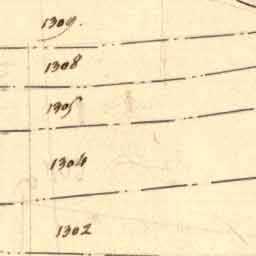 1309.
1308
1305
1304
1302